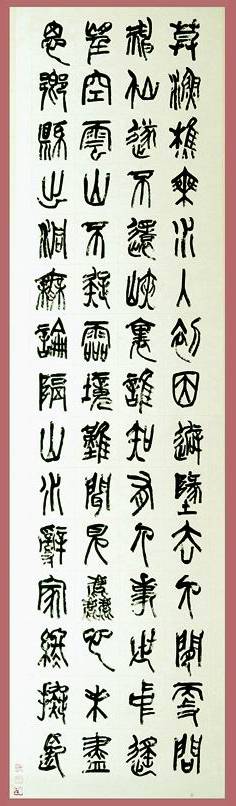 暮漁樵乘水入初因避地去人間更問
神仙遂不還峽裏誰知有人事世中遙
望空雲山不疑靈境難聞見塵心未盡
思鄉縣出洞無論隔山水辭家終擬長